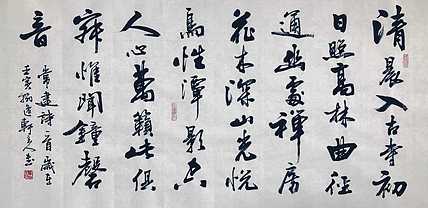 清晨入古寺初
日照高林曲徑
通幽處禪房
花木深山光悦
鳥性潭影空
人心萬籟此俱
寂惟聞鐘磬
音
常建詩一首歲在
壬寅